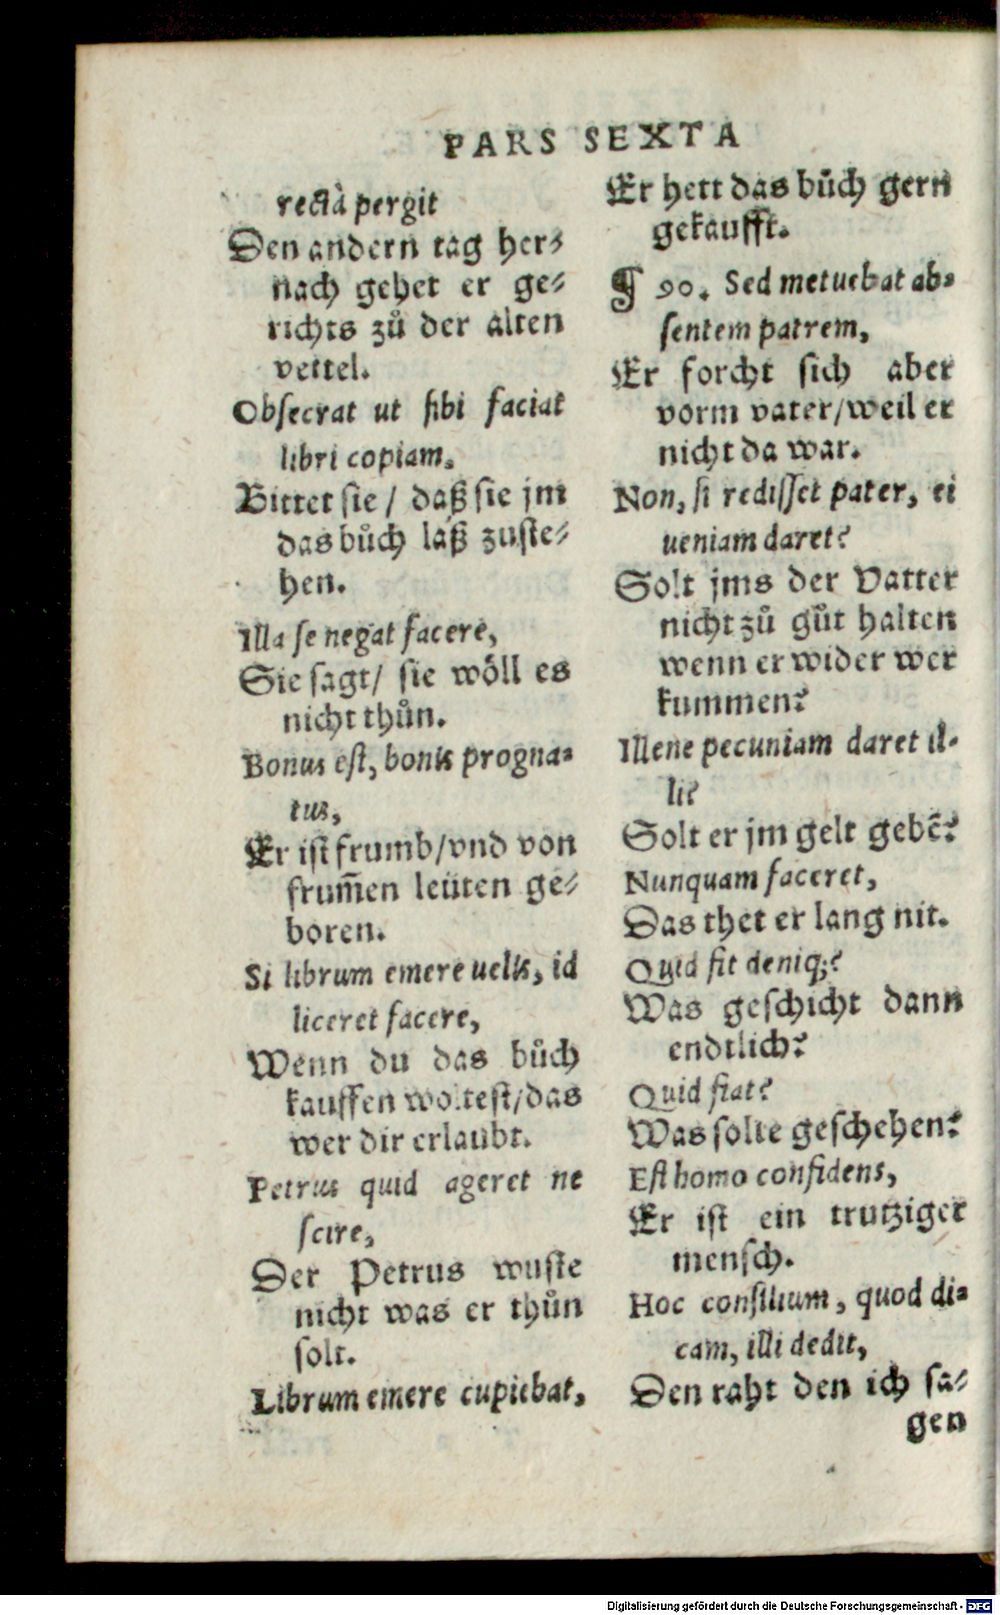 PARS SEXTA
rectà pergit
Den andern tag her⸗
nach gehet er ge⸗
richts zů der alten
vettel.
Obsecrat ut sibi faciat
libri copiam,
Bittet sie / daß sie jm
das bůch laß zuste⸗
hen.
Illa se negat facere,
Sie sagt/ sie wöll es
nicht thůn.
Bonus est, bonis progna⸗
tus,
Er ist frumb/vnd von
frum̃en leüten ge⸗
boren.
Si librum emere uelis, id
liceret facere,
Wenn du das bůch
kauffen woltest/das
wer dir erlaubt.
Petrus quid ageret ne
scire,
Der Petrus wuste
nicht was er thůn
solt.
Librum emere cupiebat,
Er hett das bůch gern
gekaufft.
¶ 90. Sed metuebat ab⸗
sentem patrem,
Er forcht sich aber
vorm vater/weil er
nicht da war.
Non, si redisset pater, ei
ueniam daret?
Solt jms der Vatter
nicht zů gůt halten
wenn er wider wer
kummen?
Illene pecuniam daret il⸗
li?
Solt er jm gelt gebẽ?
Nunquam faceret,
Das thet er lang nit.
Quid fit deniq;?
Was geschicht dann
endtlich?
Quid fiat?
Was solte geschehen?
Est homo confidens,
Er ist ein trutziger
mensch.
Hoc consilium, quod di⸗
cam, illi dedit,
Den raht den ich sa⸗
gen
Digitalisierung gefördert durch die Deutsche Forschungsgemeinschaft - DFG